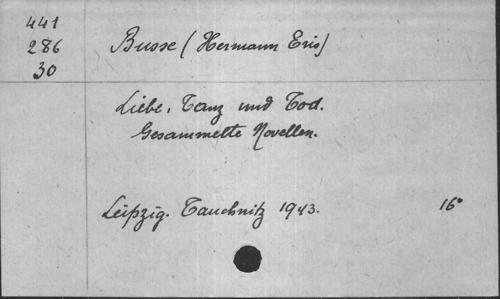 441
286
30
Busse (Hermann Eris)
Liebe, Tanz und Tod.
Gesammelte Novellen.
Leipzig. Tauchnitz 1943.
16°